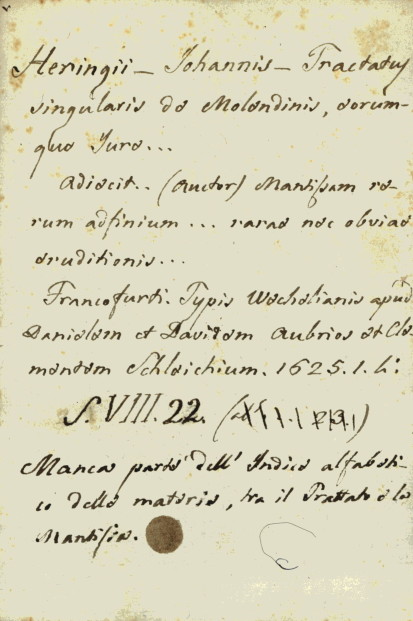 Heringii — Johannis — Tractatus
singularis de Molendinis, eorum-
que Jure...
Adiecit.. (Auctor) Mantissam re-
rum adfinium ... rarae nec obviae
eruditionis...
Francofurti. Typis Wechelianis apud
Danielem et Davidem Aubrios et Cle-
mentem Schleichium. 1625. 1. 4:
S. VIII. 22.
Manca parte dell' Indice alfabeti-
co delle materie, tra il Trattato e la
Mantissa.